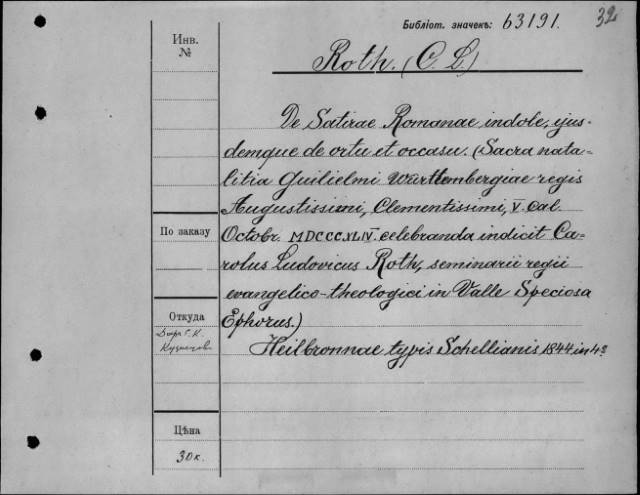 Библіот. значекъ: 63191. 32
Инв.
№
Roth. (C. L.)
De Satirae Romanae indole, ejus-
demque de ortu et occasu. (Sacra nata-
litia Guilielmi Würthembergiae regis
Augustissimi, Clementissimi, V. Cal.
По заказу
Octobr. MDCCCXLIV. celebranda indicit Ca-
rolus Ludovicus Roth, seminarii regii
evangelico-theologici in Valle Speciosa
Откуда
Ephorus.)
Heilbronnae typis Schellianis, 1844 in 4º
Цѣна
30 к.